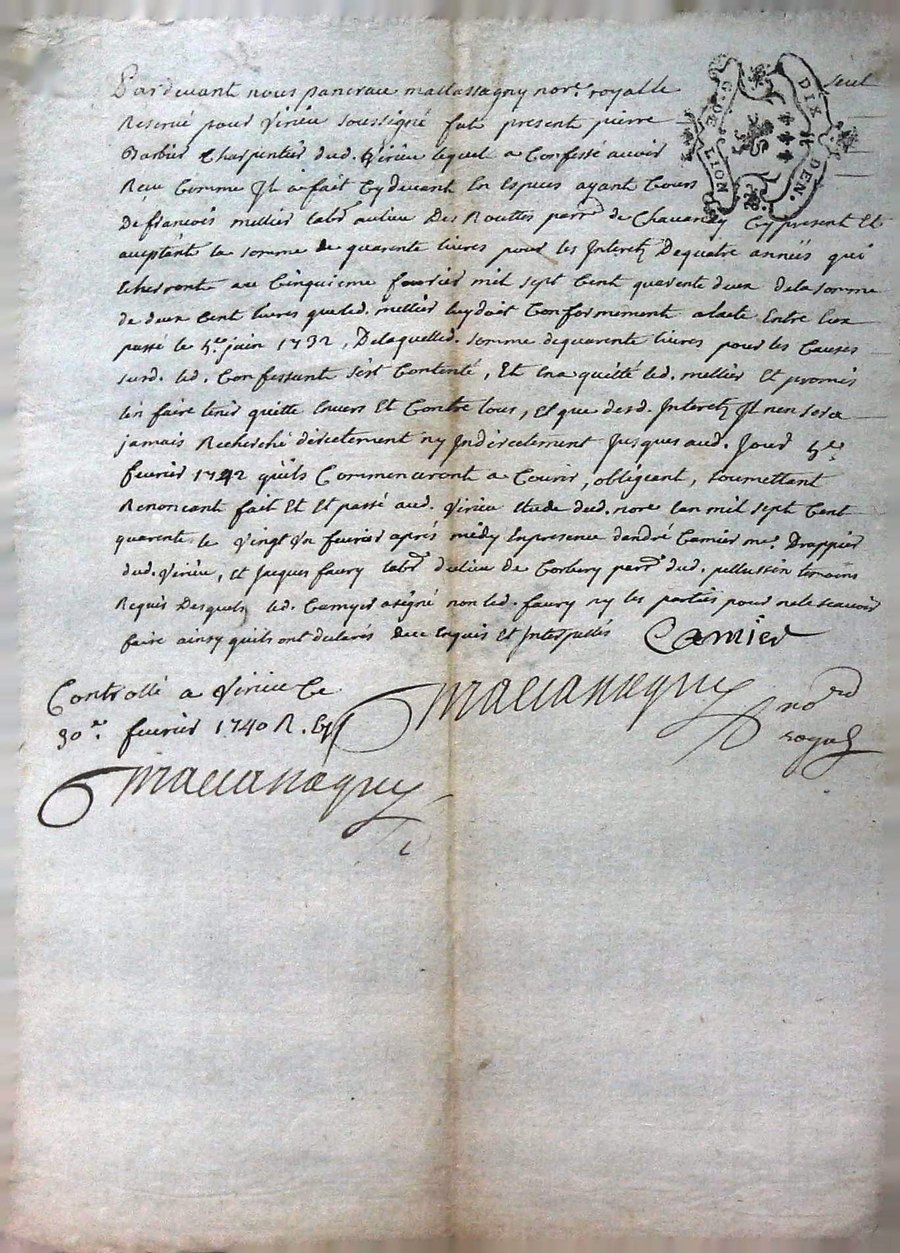 Pardevant nous pancrau mallassagny nore. royalle seul
Reservé pour Virieu soussigné fut present pierre
Barbier Charpentier dud. Virieu lequel a Confessé avoir
Reçu Comme Il a fait Cydevant En Espuces ayant Cours
De francois mellier labr au lieu Des Routtes parr. de Chavaney Cy present Et
aceptant la somme de quarente livres pour les Interetz De quatre années qui
Echeronte au Cinquieme fevrier mil sept Cent quarente deux de la somme
de deux Cent livres que led. mellier luy doit Conformement a lacte Entre Eux
passé le 5e. juin 1732, De laquelle d. somme de quarente livres pour les Causes
susd. led. Confessant s'est Contenté, Et En a quitté led. mellier Et promis
En faire tenir quitte Envers Et Contre tous, Et que desd. Interetz Il n'en sera
jamais Recherché directement ny Indirectement Jusques aud. Jour 5e.
fevrier 1742 quils Commenceront a Courir, obligeant, soumettant
Renoncant fait Et Et passé aud. Virieu Etude dud. nore lan mil sept Cent
quarente le Vingt Un fevrier aprés midy En presence d'andré Camier me. Drappier
dud. Virieu, Et Jacques faury labr du lieu de Corbery parr. dud. pellussin temoins
Requis Desquels led. Camyer a signé non led. faury ny les parties pour ne le scavoir
faire ainsy quils ont declarés de ce Enquis Et Interpellés Camier
Controllé a Virieu Ce
30e. fevrier 1740 R.
Mallassagny nore
royal
Mallassagny
G. DE LION
DIX DEN.